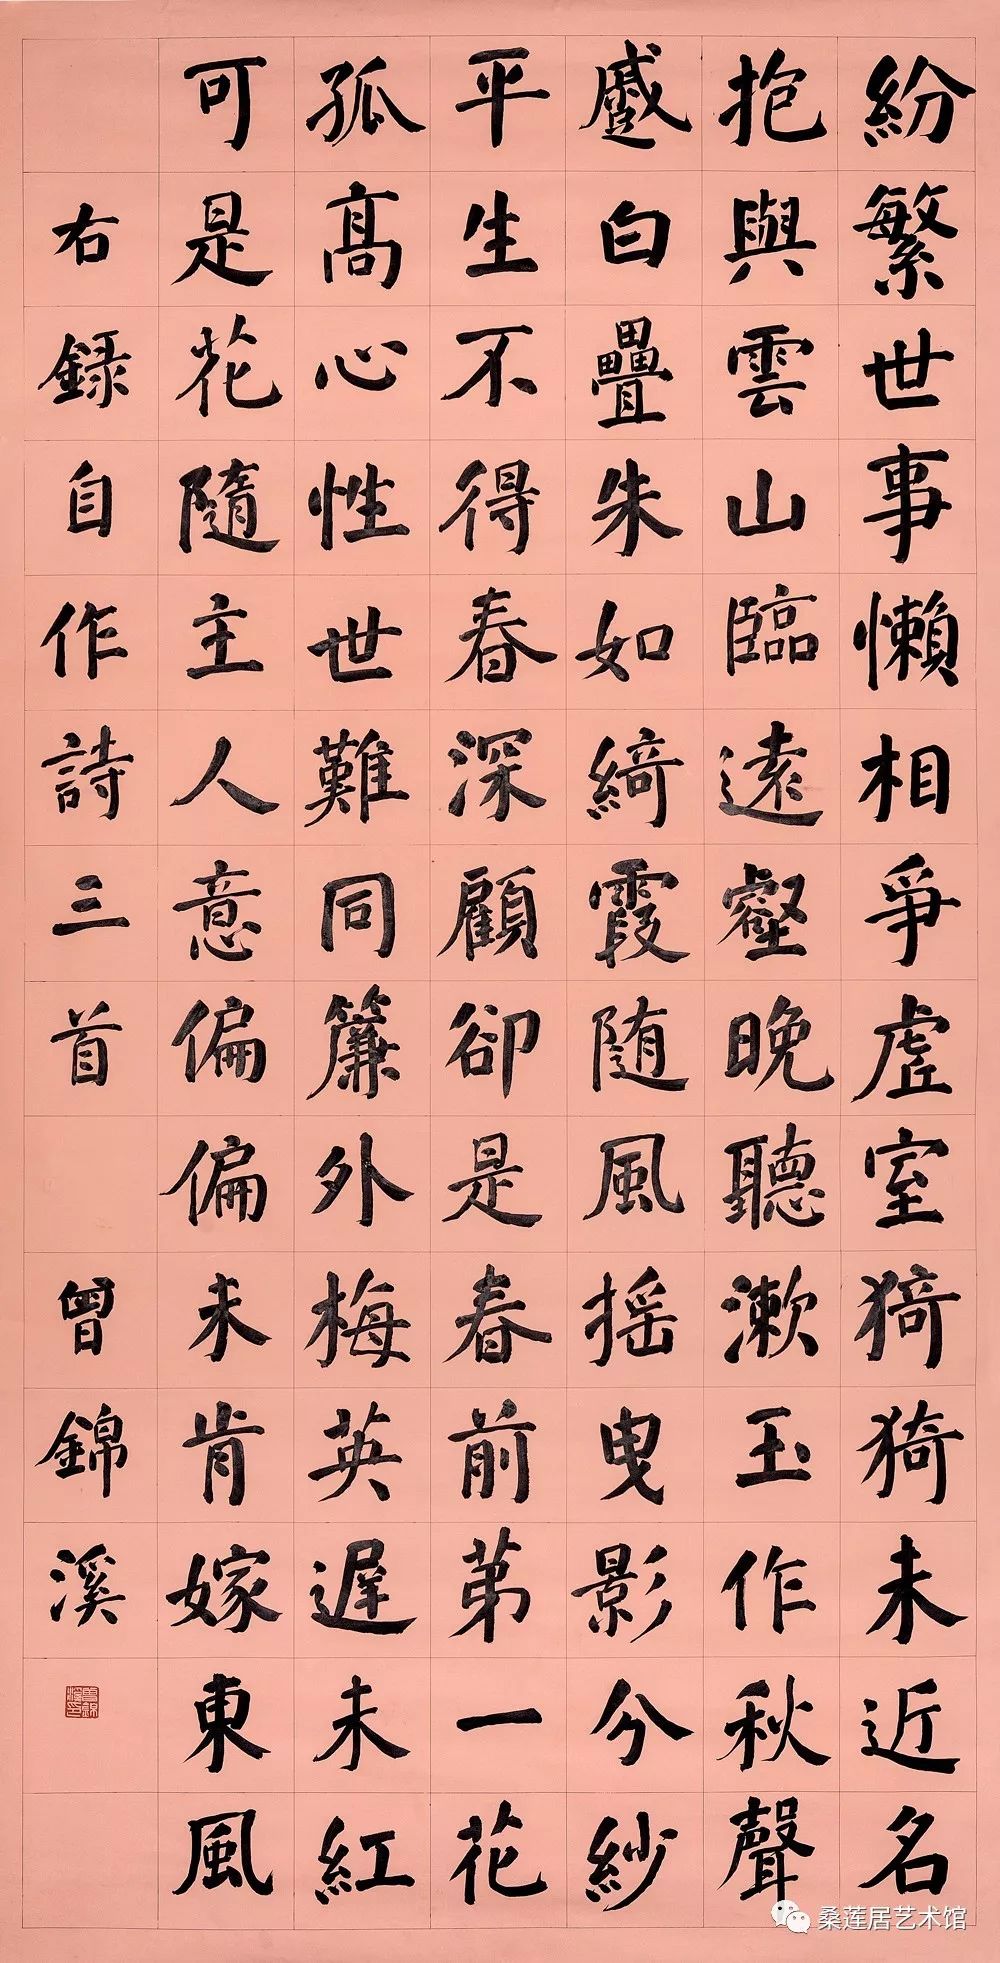 紛繁世事懶相爭虛室猗猗未近名
抱與雲山臨遠壑晚聽漱玉作秋聲
蹙白疊朱如綺霞随風搖曳影分紗
平生不得春深顧卻是春前第一花
孤高心性世難同簾外梅英遲未紅
可是花隨主人意偏偏未肯嫁東風
右録自作詩三首 曾錦溪
桑莲居艺术馆